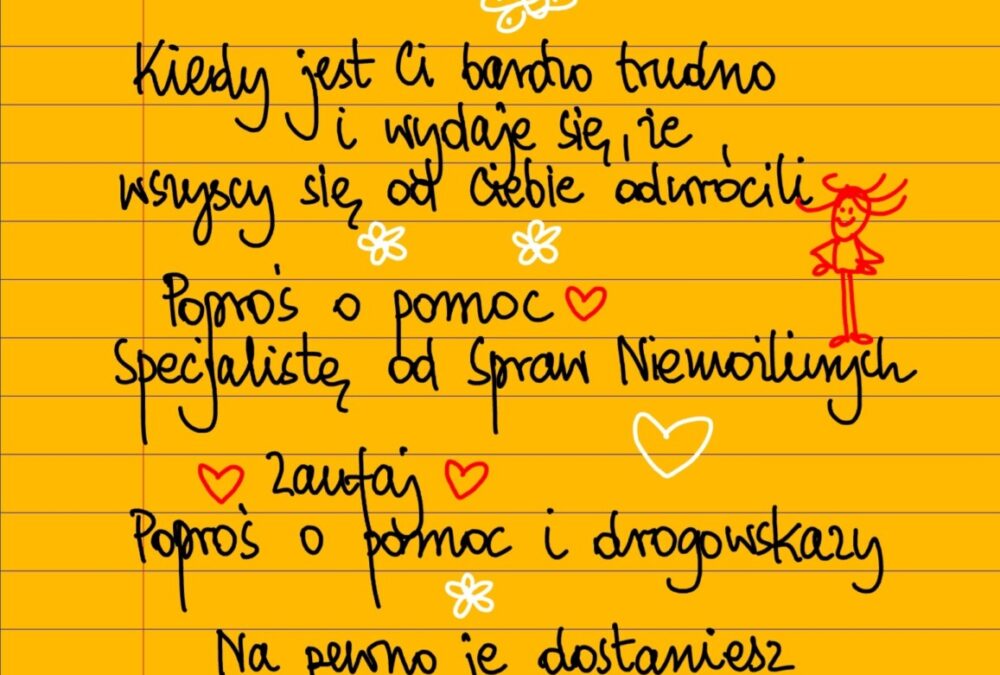 Kiedy jest Ci bardzo trudno
i wydaje się, że
wszyscy się od Ciebie odwrócili
Poproś o pomoc
Specjalistę od Spraw Niemożliwych
Zaufaj
Poproś o pomoc i drogowskazy
Na pewno je dostaniesz